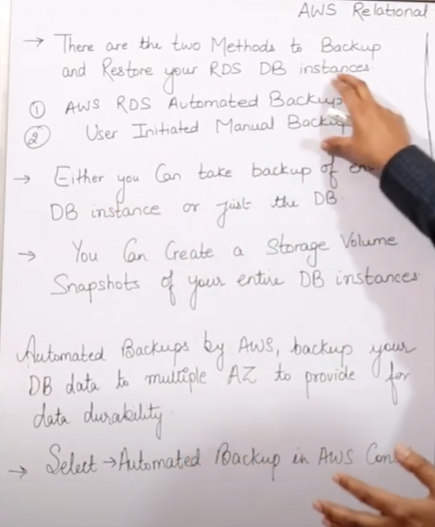 AWS Relational
→ There are the two Methods to Backup
and Restore your RDS DB instances.
① AWS RDS Automated Backup
② User Initiated Manual Backup
→ Either you Can take backup of
DB instance or just the DB.
→ You Can Create a Storage Volume
Snapshots of your entire DB instances
Automated Backups by AWS, backup your
DB data to multiple AZ to provide for
data durability.
→ Select → Automated Backup in AWS